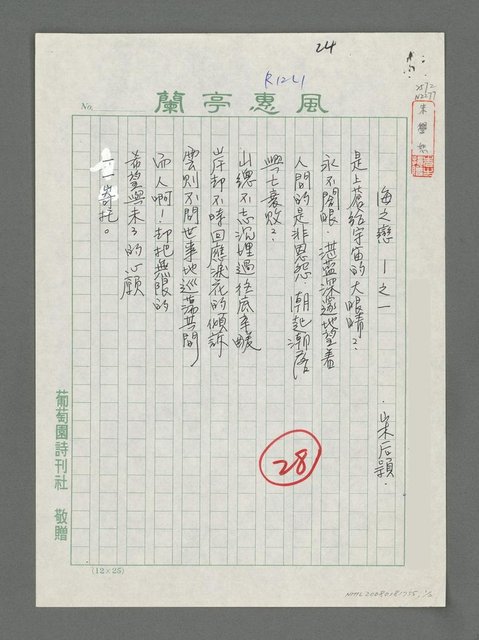 24
R1241
風惠亭蘭
No.
朱學恕
海之戀—之一
．朱后顯．
是上蒼給宇宙的大眼睛？
永不闔眼．湛藍深邃地望着
人間的是非恩怨．潮起潮落
與亡衰敗？
山總不忘沉埋過往底辛酸
岸却不時回應浪花的傾訴
雲則不問世事地巡蕩其間
而人啊！却把無限的
希望與未了的心願
一一寄托。
28
葡萄園詩刊社 敬贈
(12×25)